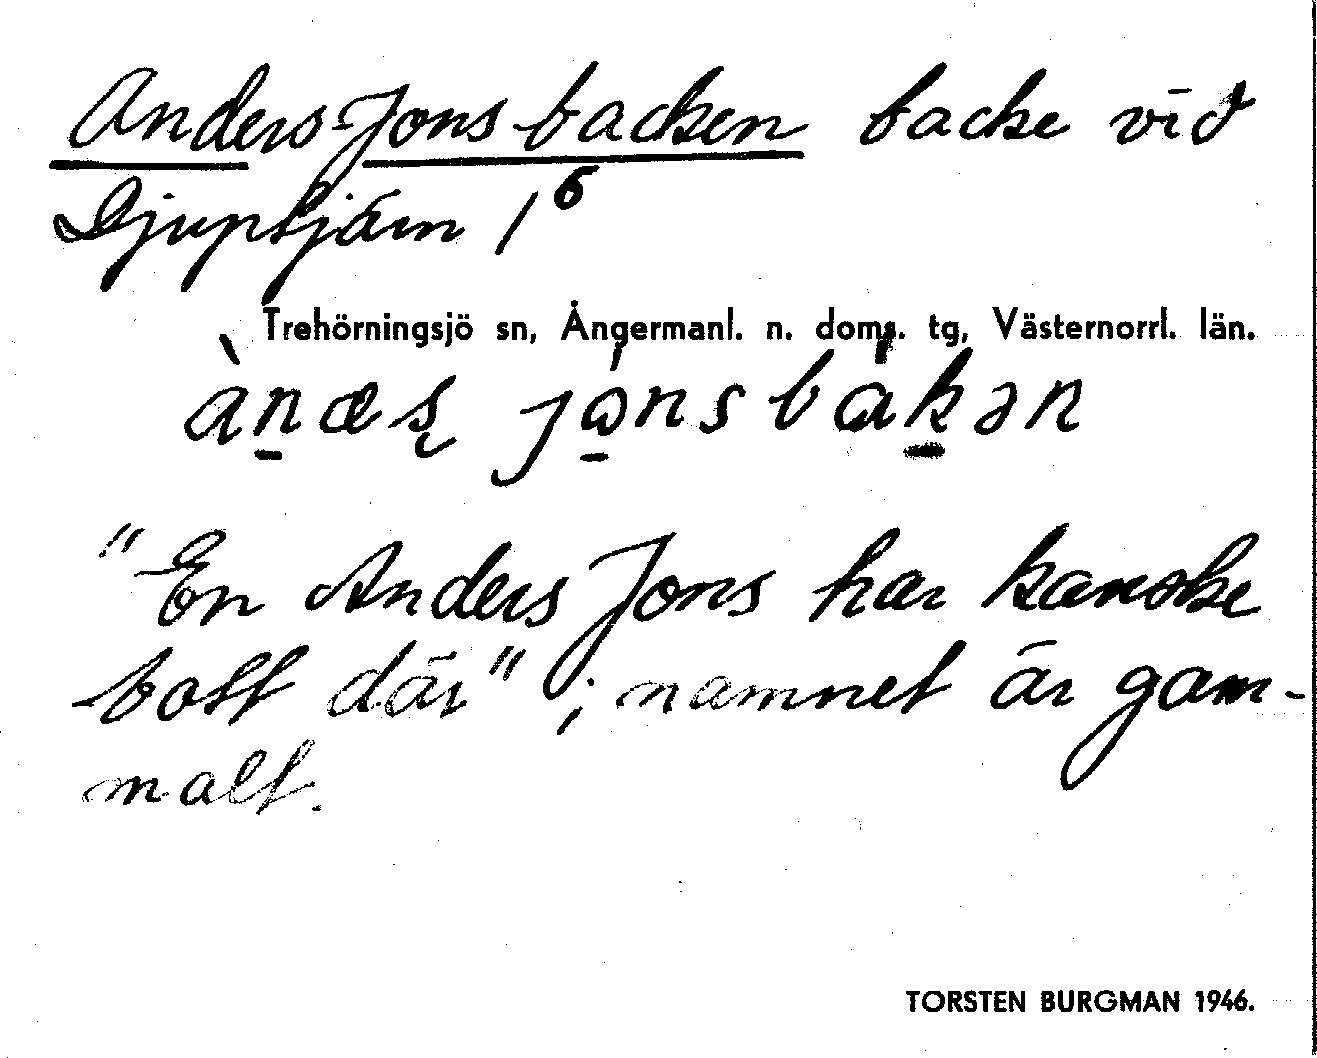 Anders-Jons-backen backe vid
Djuptjärn 1⁶
Trehörningsjö sn, Ångermanl. n. doms. tg, Västernorrl. län.
ànæș jo̱nsbák̠ən
"En Anders Jons har kanske
bott där"; namnet är gam-
malt.
TORSTEN BURGMAN 1946.